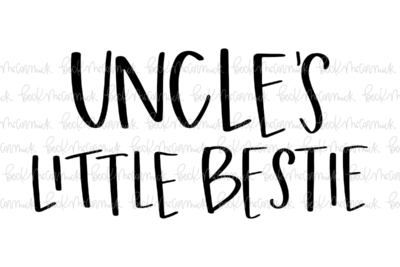 UNCLE'S
LITTLE BESTIE